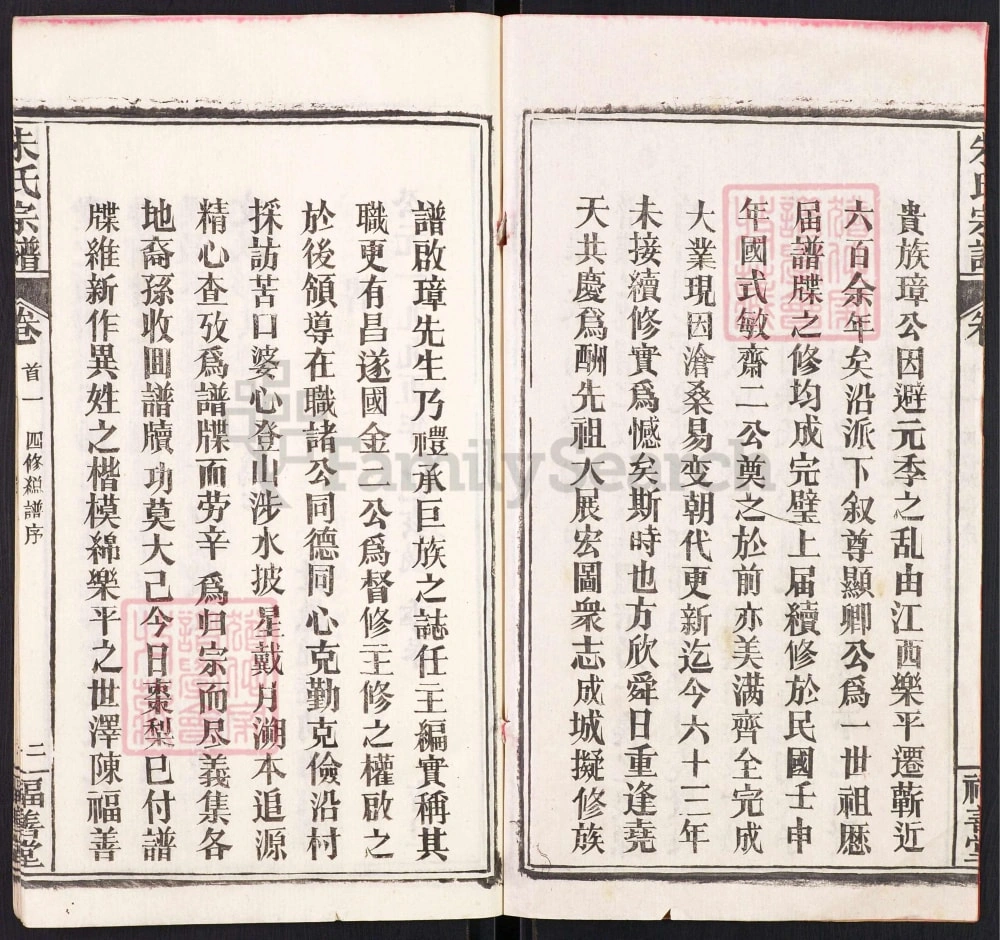 貴族璋公因避元季之乱由江西樂平遷蘄近
六百余年矣沿派下叙尊顯卿公爲一世祖歷
届譜牒之修均成完璧上届續修於民國壬申
年國式敏齋二公奠之於前亦美满齊全完成
大業現因滄桑易变朝代更新迄今六十三年
未接續修實爲憾矣斯時也方欣舜日重逢堯
天共慶爲酬先祖大展宏圖衆志成城擬修族
朱氏宗譜
福善堂
譜啟璋先生乃禮承巨族之誌任主編實稱其
職更有昌遂國金二公爲督修主修之權啟之
於後領導在職諸公同德同心克勤克儉沿村
採訪苦口婆心登山涉水披星戴月溯本追源
精心查攷爲譜牒而劳辛爲归宗而尽義集各
地裔孫收回譜牘功莫大己今日棗梨已付譜
牒維新作異姓之楷模綿樂平之世澤陳福善
朱氏宗譜
卷首一
四修継譜序
二
福善堂
FamilySearch